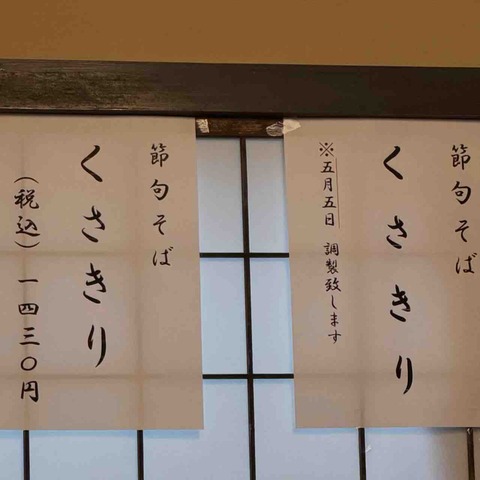 節句そば
くさきり
※五月五日 調製致します
節句そば
くさきり
(税込)一四三〇円